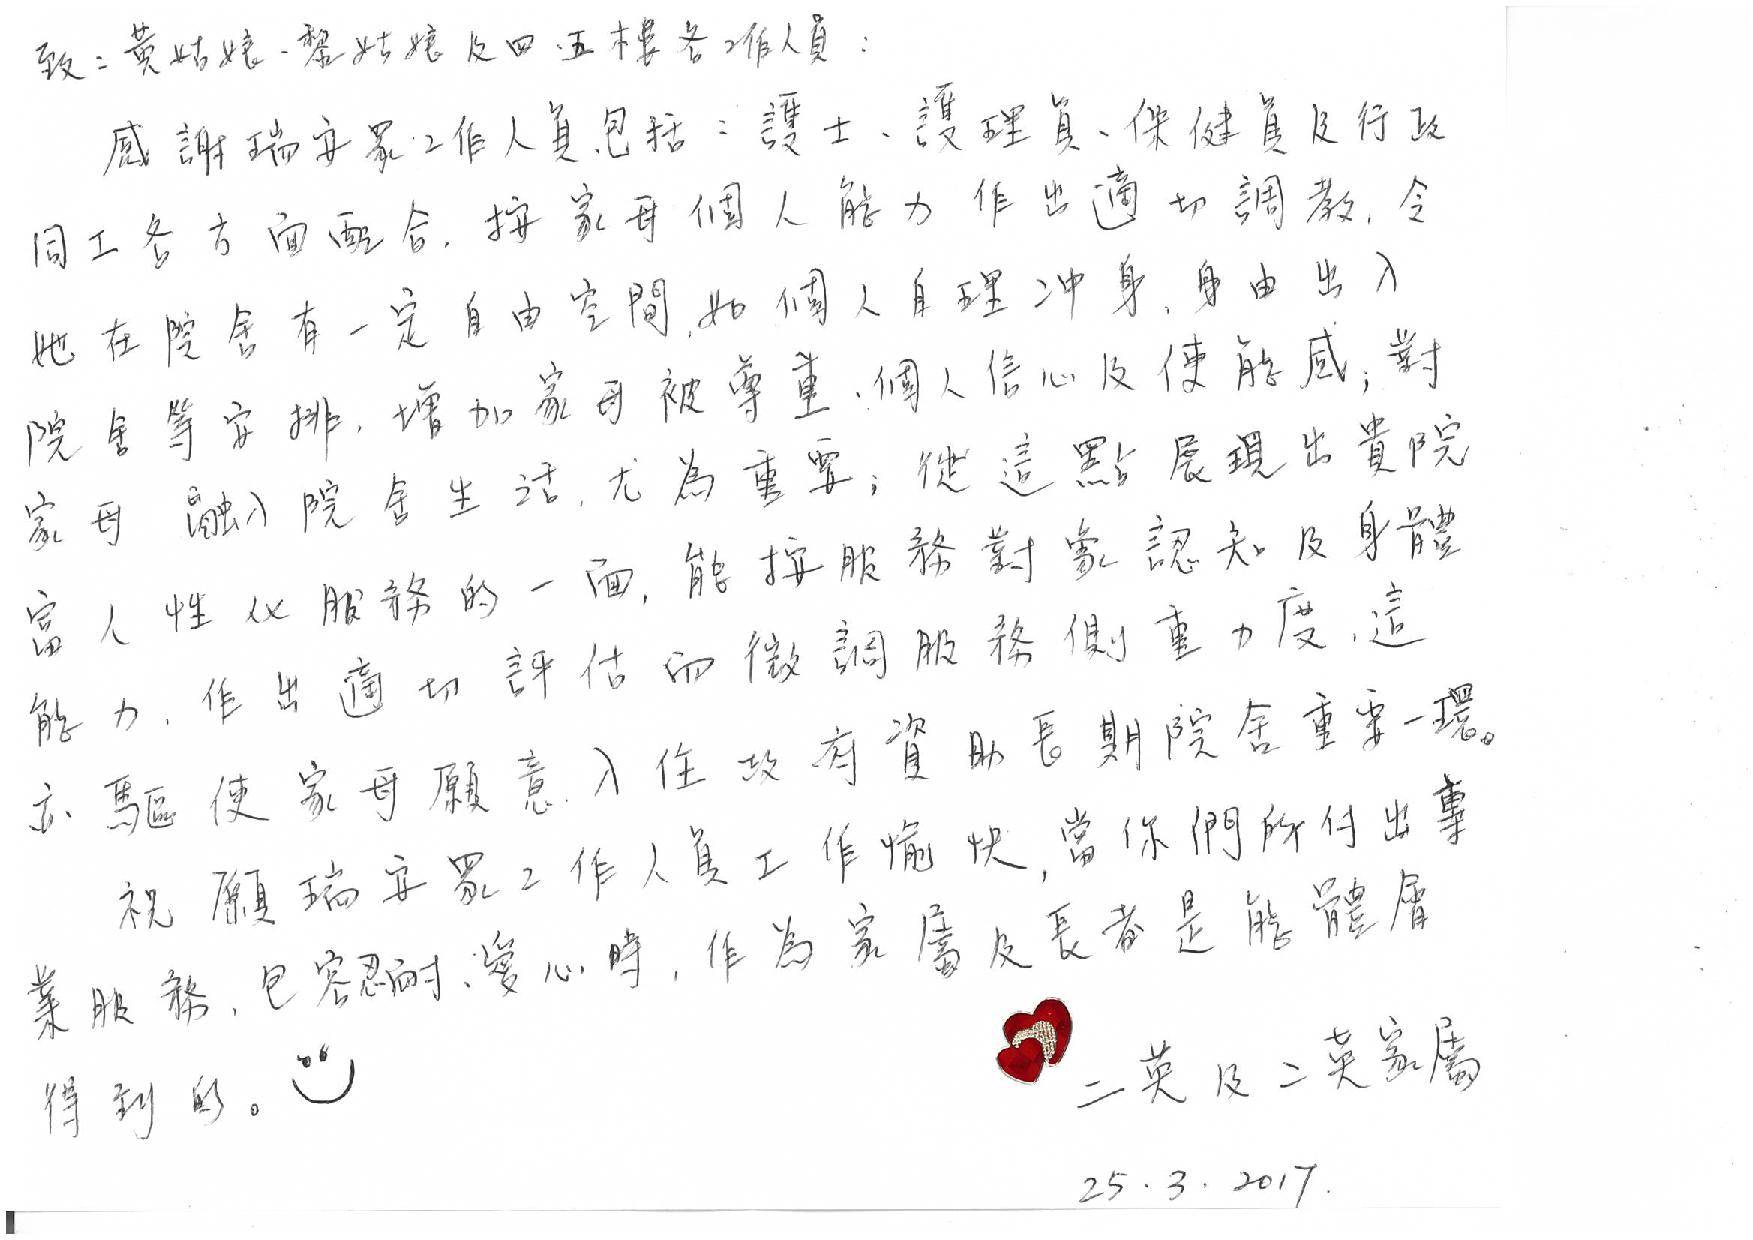 致：黄姑娘、黎姑娘及四、五樓各工作人員：
感謝瑞安翠工作人員包括：護士、護理員、保健員及行政
同工各方面配合，按家母個人能力作出適切調教，令
她在院舍有一定自由空間，如個人自理冲身、身由出入
院舍等安排，增加家母被尊重、個人信心及使能感；對
家母融入院舍生活，尤為重要；從這點展現出貴院
富人性化服務的一面，能按服務對象認知及身體
能力，作出適切評估而微調服務側重力度，這
亦驅使家母願意入住政府資助長期院舍重要一環。
祝願瑞安翠工作人員工作愉快，當你們所付出專
業服務，包容忍耐、愛心時，作為家屬及長者是能體會
得到的。
二英及二英家屬
25.3.2017.